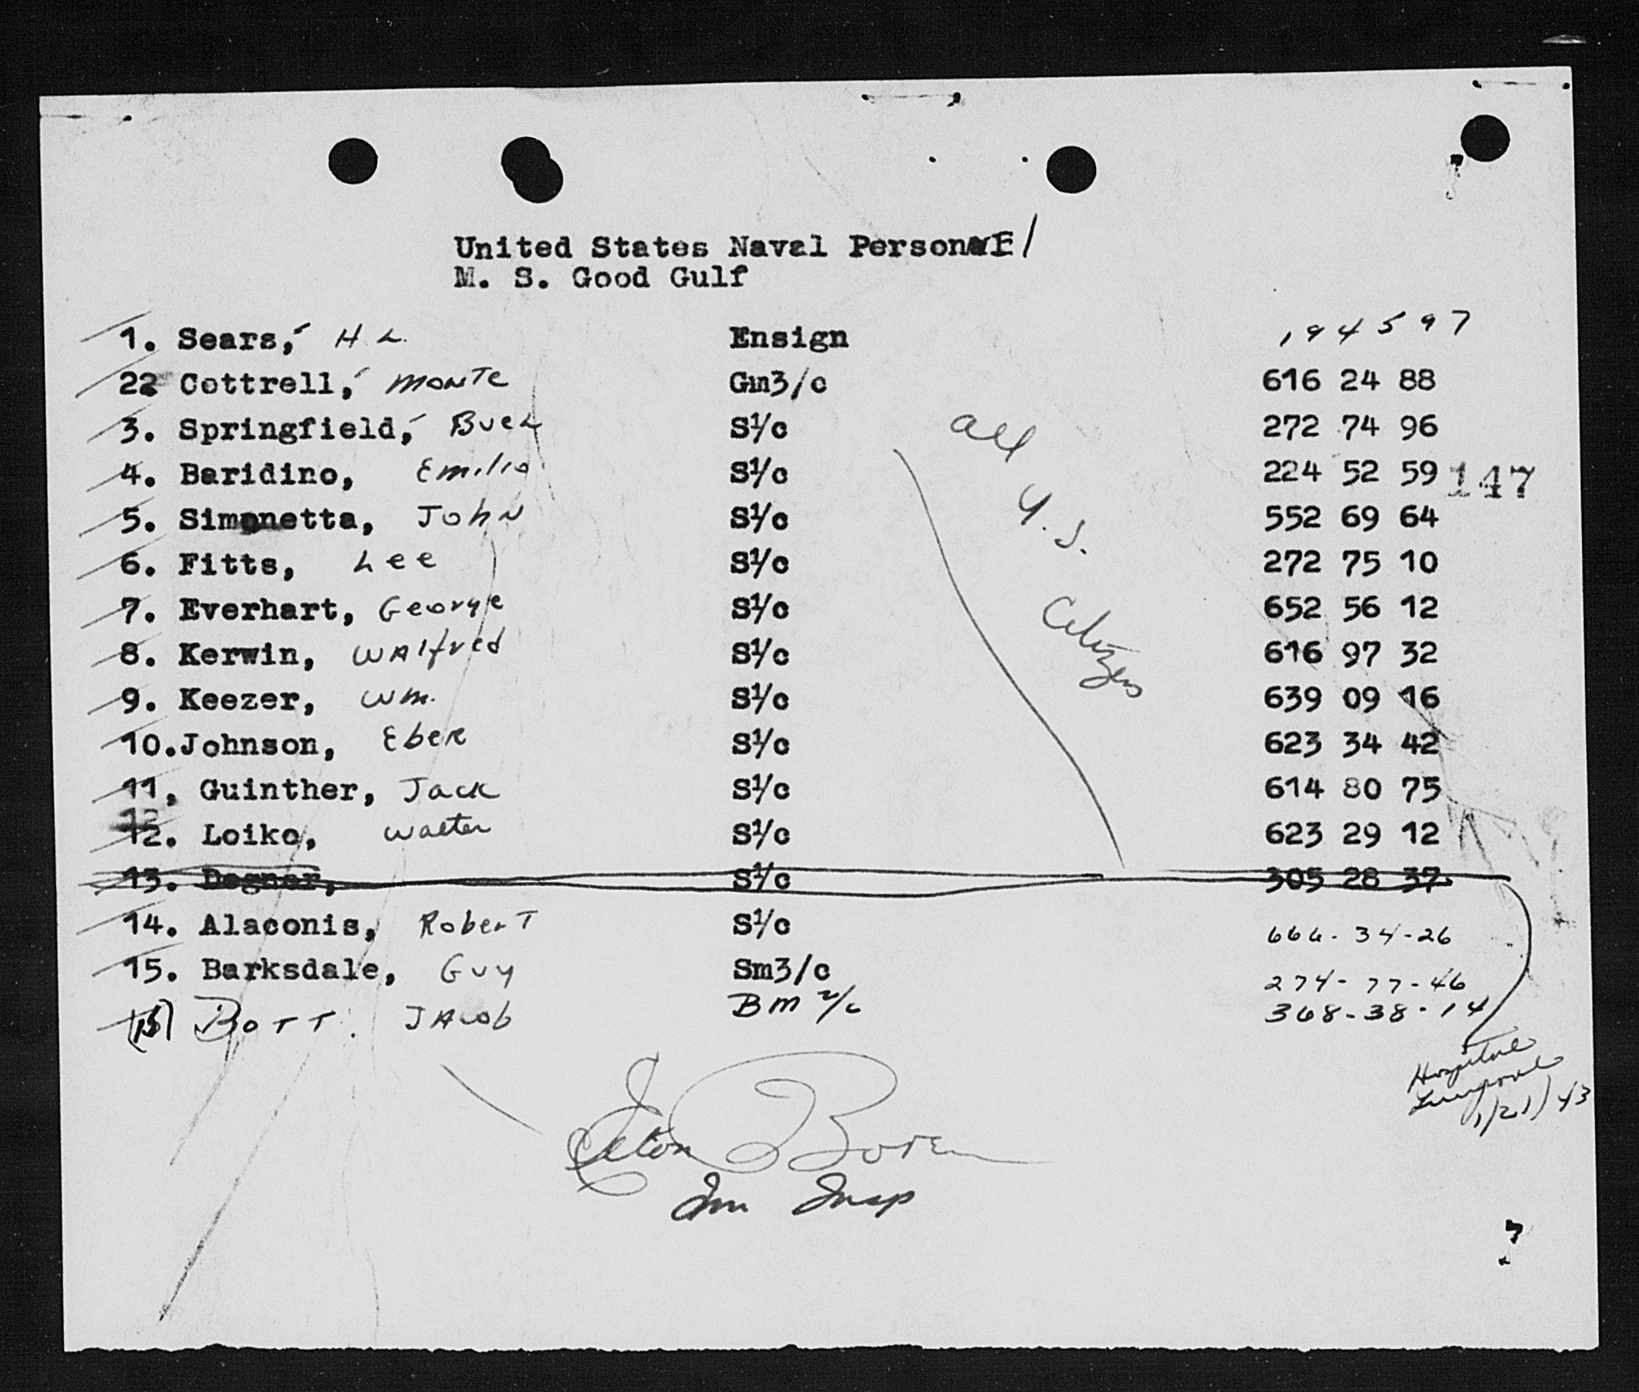 United States Naval Personnel
M. S. Good Gulf
1. Sears, H L. Ensign 194597
22 Cottrell, Monte Gm3/c 616 24 88
3. Springfield, Buel S1/c 272 74 96
4. Baridino, Emilio S1/c 224 52 59 147
5. Simonetta, John S1/c 552 69 64
6. Fitts, Lee S1/c 272 75 10
7. Everhart, George S1/c 652 56 12
8. Kerwin, Walfred S1/c 616 97 32
9. Keezer, Wm. S1/c 639 09 16
10. Johnson, Eber S1/c 623 34 42
11, Guinther, Jack S1/c 614 80 75
12. Loiko, Walter S1/c 623 29 12
13. Degner, S1/c 305 28 37
14. Alaconis, Robert S1/c 666-34-26
15. Barksdale, Guy Sm3/c 274-77-46
Bott. Jacob BM 2/c 368-38-14
all U.S. Citizens
Hospital
Liverpool
1/21/43
Elton Boren
Im Insp